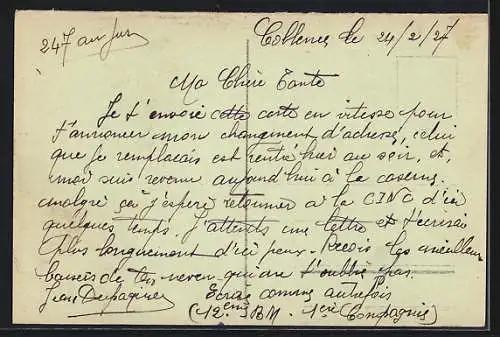 247 au jus
Coblence le 24/2/27
Ma Chère Tante
Je t'envoie cette carte en vitesse pour
t'annoncer mon changement d'adresse, celui
que je remplaçais est rentré hier au soir, et,
moi suis revenu aujourd'hui à la caserne
malgré ça j'espère retourner à la d'ici
quelques temps. J'attends une lettre et t'écrirai
plus longuement d'ici peu. Reçois les meilleurs
baisers de ton neveu qui ne t'oublie pas.
Jean
Ecrire comme autrefois
(12ème BM. 1ère Compagnie)